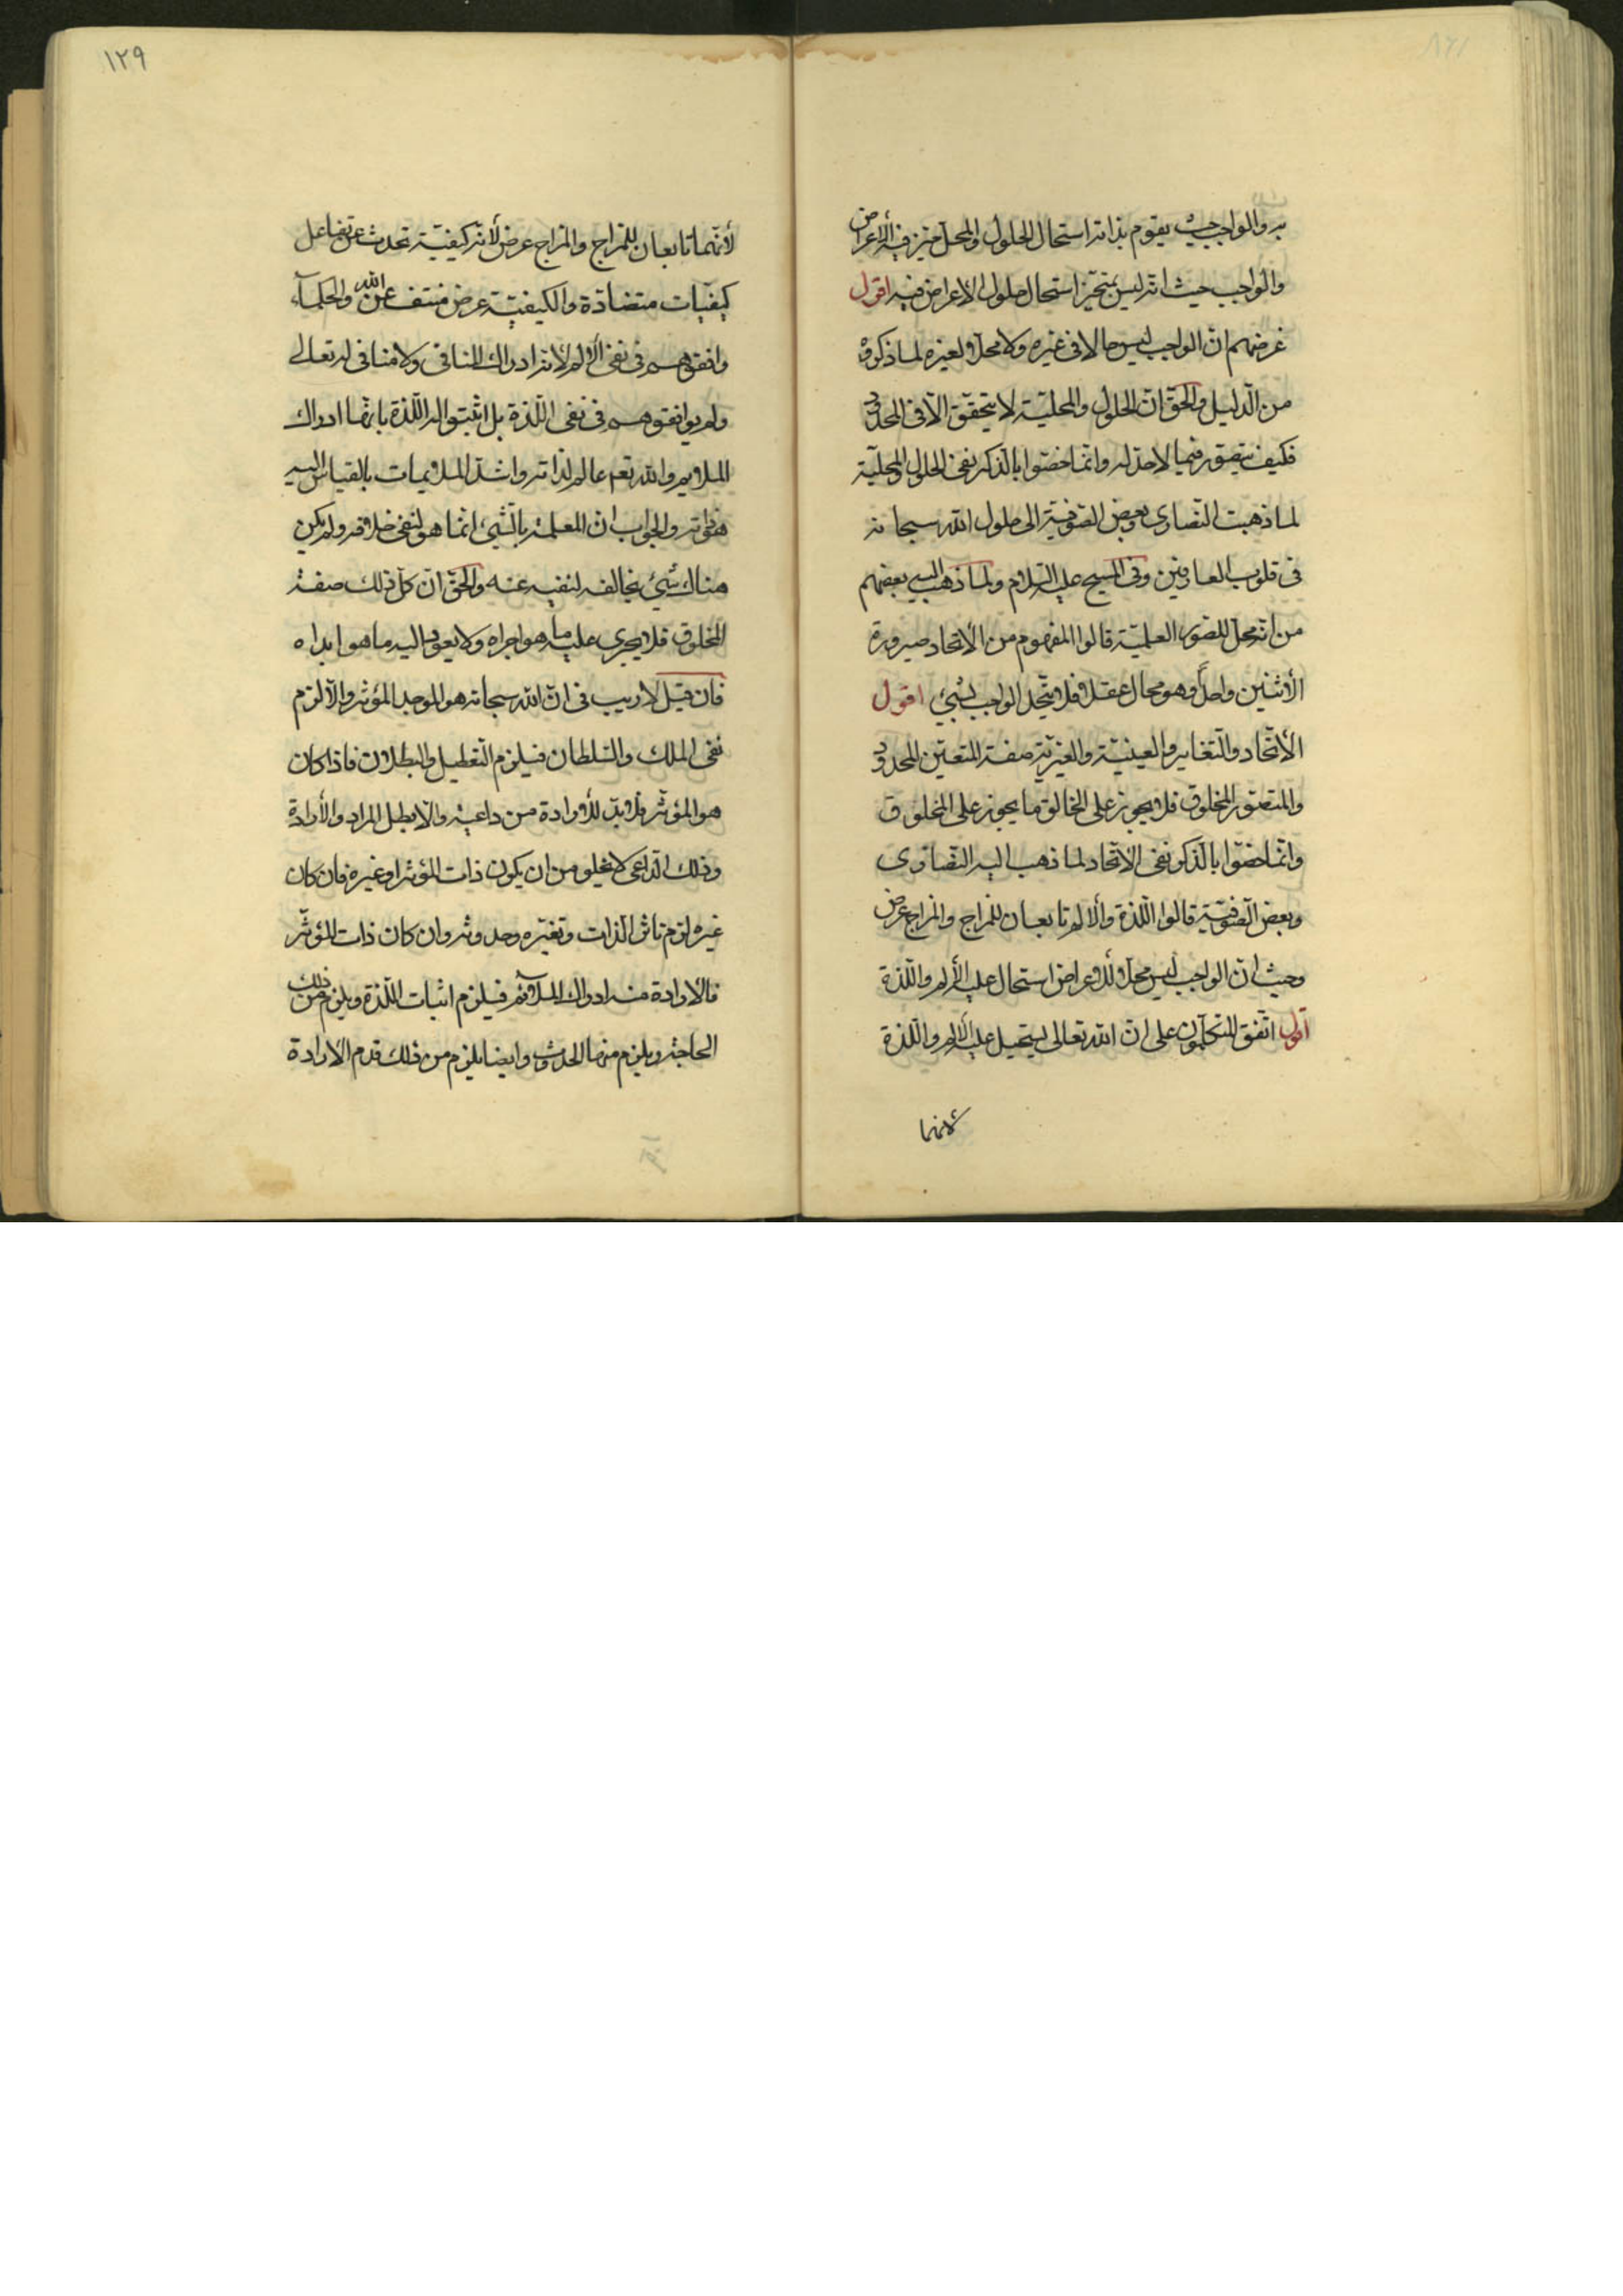 به والواجب حيث يقوم بذاته استحال الحلول والمحل متحيز فيه الأعراض
والواجب حيث انه ليس بمتحيز استحال حلول الاعراض فيه اقول
غرضهم انّ الواجب ليس حالا فى غيره ولا محلّا لغيره لما ذكروه
من الدّليل والحقّ انّ الحلول والمحليّة لا يتحقّق الّا فى المحدود
فكيف يتصور فيما لا حدّ له وانّما خصّوا بالذّكر نفى الحلول والمحليّة
لما ذهبت النّصارى وبعض الصّوفيّة الى حلول الله سبحانه
فى قلوب العارفين وفى المسيح عليه السّلام ولما ذهب اليه بعضهم
من انّه محلّ للصّور العلميّة قالوا المفهوم من الأتحاد صيرورة
الأثنين واحداً وهو محال عقلا فلا يتّحد الواجب بشيئ اقول
الأتّحاد والتّغاير والعينيّة والغيريّة صفة المتعيّن المحدود
والمتصوّر المخلوق فلا يجوز على الخالق ما يجوز على المخلوق
وانّما خصّوا بالذّكر نفى الأتّحاد لما ذهب اليه النّصارى
وبعض الصّوفيّة قالوا اللّذة والألم تابعان للمزاج والمزاج عرض
وحيث انّ الواجب ليس محلّا للأعراض استحال عليه الألم واللّذة
اقول اتّفق المتكلّمون على انّ الله تعالى يستحيل عليه الألم واللّذة
لأنهما
١٢٩
لأنّهما تابعان للمزاج والمزاج عرض لأنّه كيفيّة تحدث عن تفاعل
كيفيّات متضادّة والكيفيّة عرض منتف عن الله والحكمآء
وافقوهم فى نفى الألم لأنّه ادراك المنافى ولا منافى له تعالى
ولم يوافقوهم فى نفى اللّذة بل اثبتوا له اللّذة بانّها ادراك
الملايم والله تعم عالم لذاته واشدّ الملايمات بالقياس اليه
هو ذاته والجواب ان المعلمة بالشّيئ انّما هو لنفى خلافه ولم يكن
هناك شيئ يخالفه لنفيه عنه والحقّ انّ كلّ ذلك صفة
المخلوق فلا يجرى عليه ما هو اجراه ولا يعود اليه ما هو ابداه
فان قيل لا ريب فى انّ الله سبحانه هو الموجد المؤثر والّا لزم
نفى الملك والسّلطان فيلزم التّعطيل والبطلان فاذا كان
هو المؤثّر فلا بدّ للأرادة من داعية والّا بطل المراد والأرادة
وذلك الدّاعى لا يخلو من ان يكون ذات المؤثر او غيره فان كان
غيره لزم تاثر الذات وتغيّره وحدوثه وان كان ذات المؤثّر
فالأرادة منه ادراك الملآئم فيلزم اثبات اللّذة ويلزم من ذلك
الحاجة ويلزم منها الحدوث وايضا يلزم من ذلك قدم الأرادة